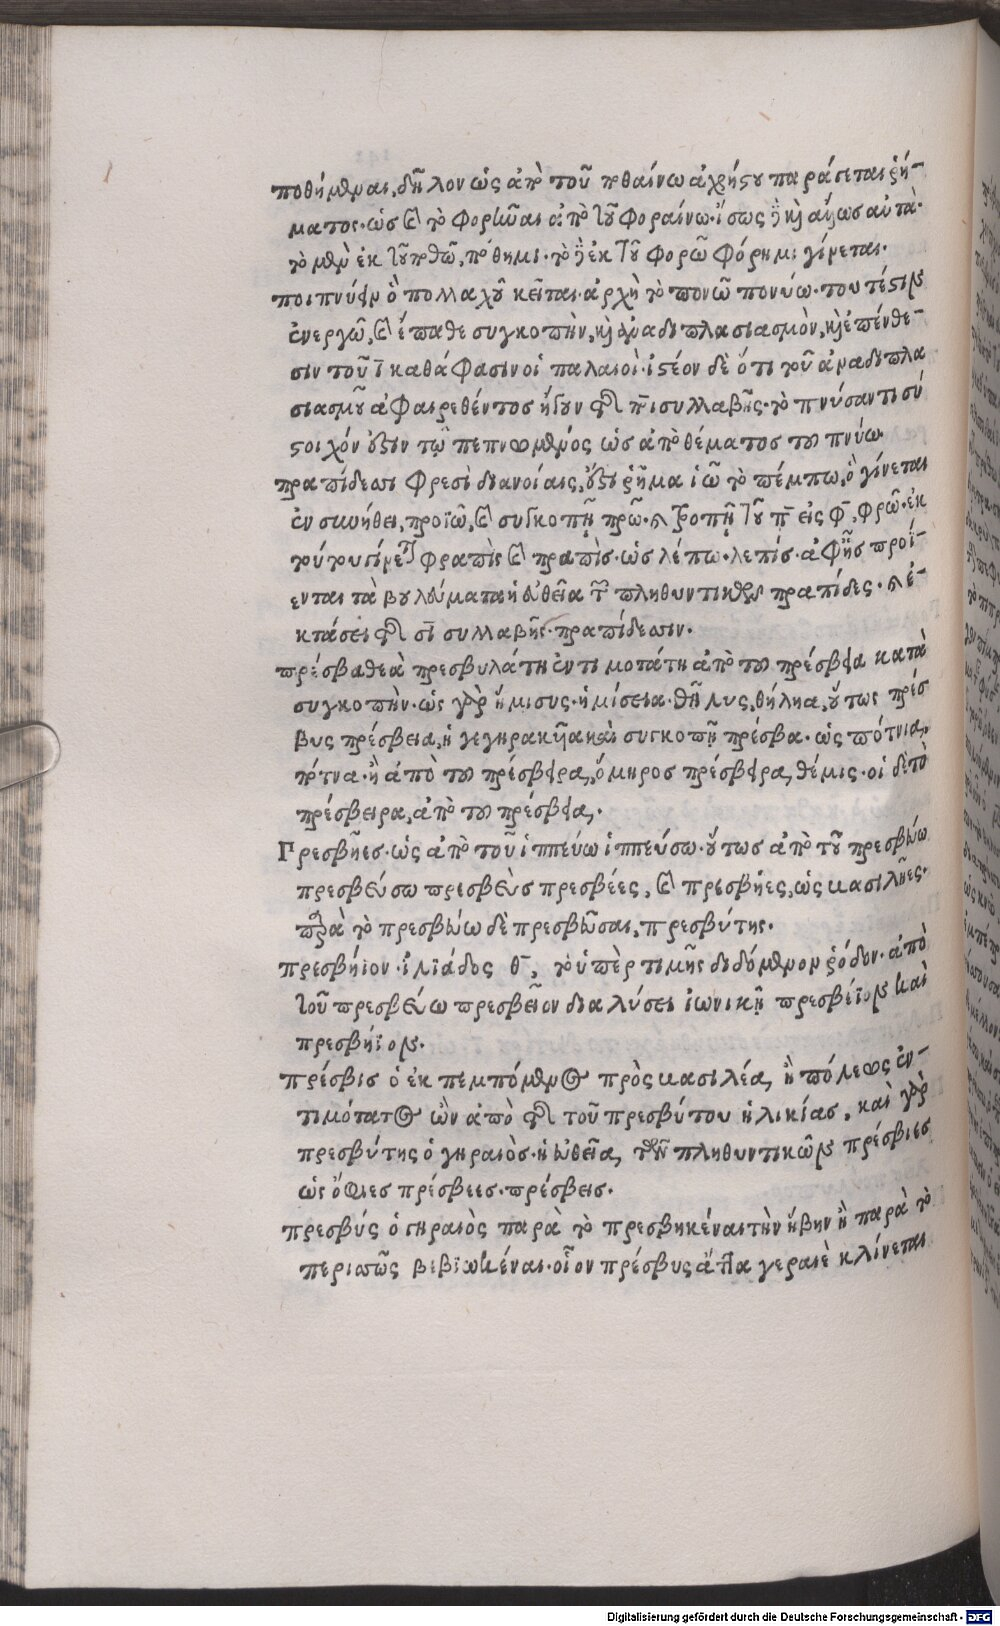 ποθήμεναι, δῆλον ὡς ἀπὸ τοῦ ποθαίνω ἀχρήστου παράγεται ῥή-
ματος. ὡς καὶ τὸ φορῆναι ἀπὸ τοῦ φοραίνω. ἴσως ἢ καὶ αὐτά.
τὸ μὲν ἐκ τοῦ ποθῶ, πόθημι. τὸ δὲ ἐκ τοῦ φορῶ φόρημι γίνεται.
ποιπνύειν ὃ πολλαχοῦ κεῖται. ἀρχὴ τὸ πονῶ πονύω. τουτέστιν
ἐνεργῶ, καὶ ἔπαθε συγκοπὴν, καὶ ἀναδιπλασιασμὸν, καὶ ἐπένθε-
σιν τοῦ ῑ καθά φασιν οἱ παλαιοί. ἰστέον δὲ ὅτι τοῦ ἀναδιπλα
σιασμοῦ ἀφαιρεθέντος ἤγουν τῆς ποι συλλαβῆς. τὸ πνύσαντι σύ
στοιχόν ἐστιν τῷ πεπνυμένος ὡς ἀπὸ θέματος τοῦ πνύω.
πραπίδεσσι φρεσὶ διανοίαις, ἔστι ῥῆμα ἱῶ τὸ πέμπω, ὃ γίνεται
ἐν συνθήκῃ, προϊῶ, καὶ συγκοπῇ πρῶ. καὶ τροπῇ τοῦ π̄ εἰς φ̄, φρῶ. ἐκ
τούτου γίνεται φραπὶς καὶ πραπὶς. ὡς λέπω. λεπίς. ἀφ' ἧς προΐ-
ενται τὰ βουλεύματα ἡ εὐθεῖα τῶν πληθυντικῶν πραπίδες. καὶ ἐ-
κτάσει τῆς σι συλλαβῆς πραπίδεσσιν.
πρέσβα θεὰ πρεσβυτάτη ἐντιμοτάτη ἀπὸ τοῦ πρέσβεια κατὰ
συγκοπὴν. ὡς γὰρ ἥμισυς. ἡμίσεια. θῆλυς, θήλεια, οὕτως πρέσ
βυς πρέσβεια, ἡ γεγηρακυῖα καὶ συγκοπῇ πρέσβα. ὡς πότνια,
πότνα. ἢ ἀπὸ τοῦ πρέσβειρα, ὅμηρος πρέσβειρα, θέμις. οἱ δὲ τὸ
πρέσβειρα, ἀπὸ τοῦ πρέσβεια.
Πρεσβῆες. ὡς ἀπὸ τοῦ ἱππεύω ἱππεύσω. οὕτως ἀπὸ τοῦ πρεσβεύω
πρεσβεύσω πρεσβεὺς πρεσβέες, καὶ πρεσβῆες, ὡς βασιλῆες.
παρὰ τὸ πρεσβεύω δὲ πρεσβεῦσαι, πρεσβύτης.
πρεσβήϊον. ἰλιάδος θ̄, τὸ ὑπὲρ τιμῆς διδόμενον ῥόδον. ἀπὸ
τοῦ πρεσβεύω πρεσβεῖον διαλύσει ἰωνικῇ πρεσβέϊον καὶ
πρεσβήϊον.
πρέσβις ὁ ἐκπεμπόμενος πρὸς βασιλέα, ἢ πόλεως ἐν-
τιμότατος ὢν ἀπὸ τῆς τοῦ πρεσβύτου ἡλικίας, καὶ γὰρ
πρεσβύτης ὁ γηραιός. ἡ εὐθεῖα, τῶν πληθυντικῶν πρέσβιες
ὡς ὄφιες πρέσβεες. πρέσβεις.
πρεσβύς ὁ γηραιὸς παρὰ τὸ προσβηκέναι τὴν ἥβην ἢ παρὰ τὸ
περισσῶς βεβιωκέναι. οἷον πρέσβυς ἄττα γεραιὲ κλίνεται
Digitalisierung gefördert durch die Deutsche Forschungsgemeinschaft - DFG